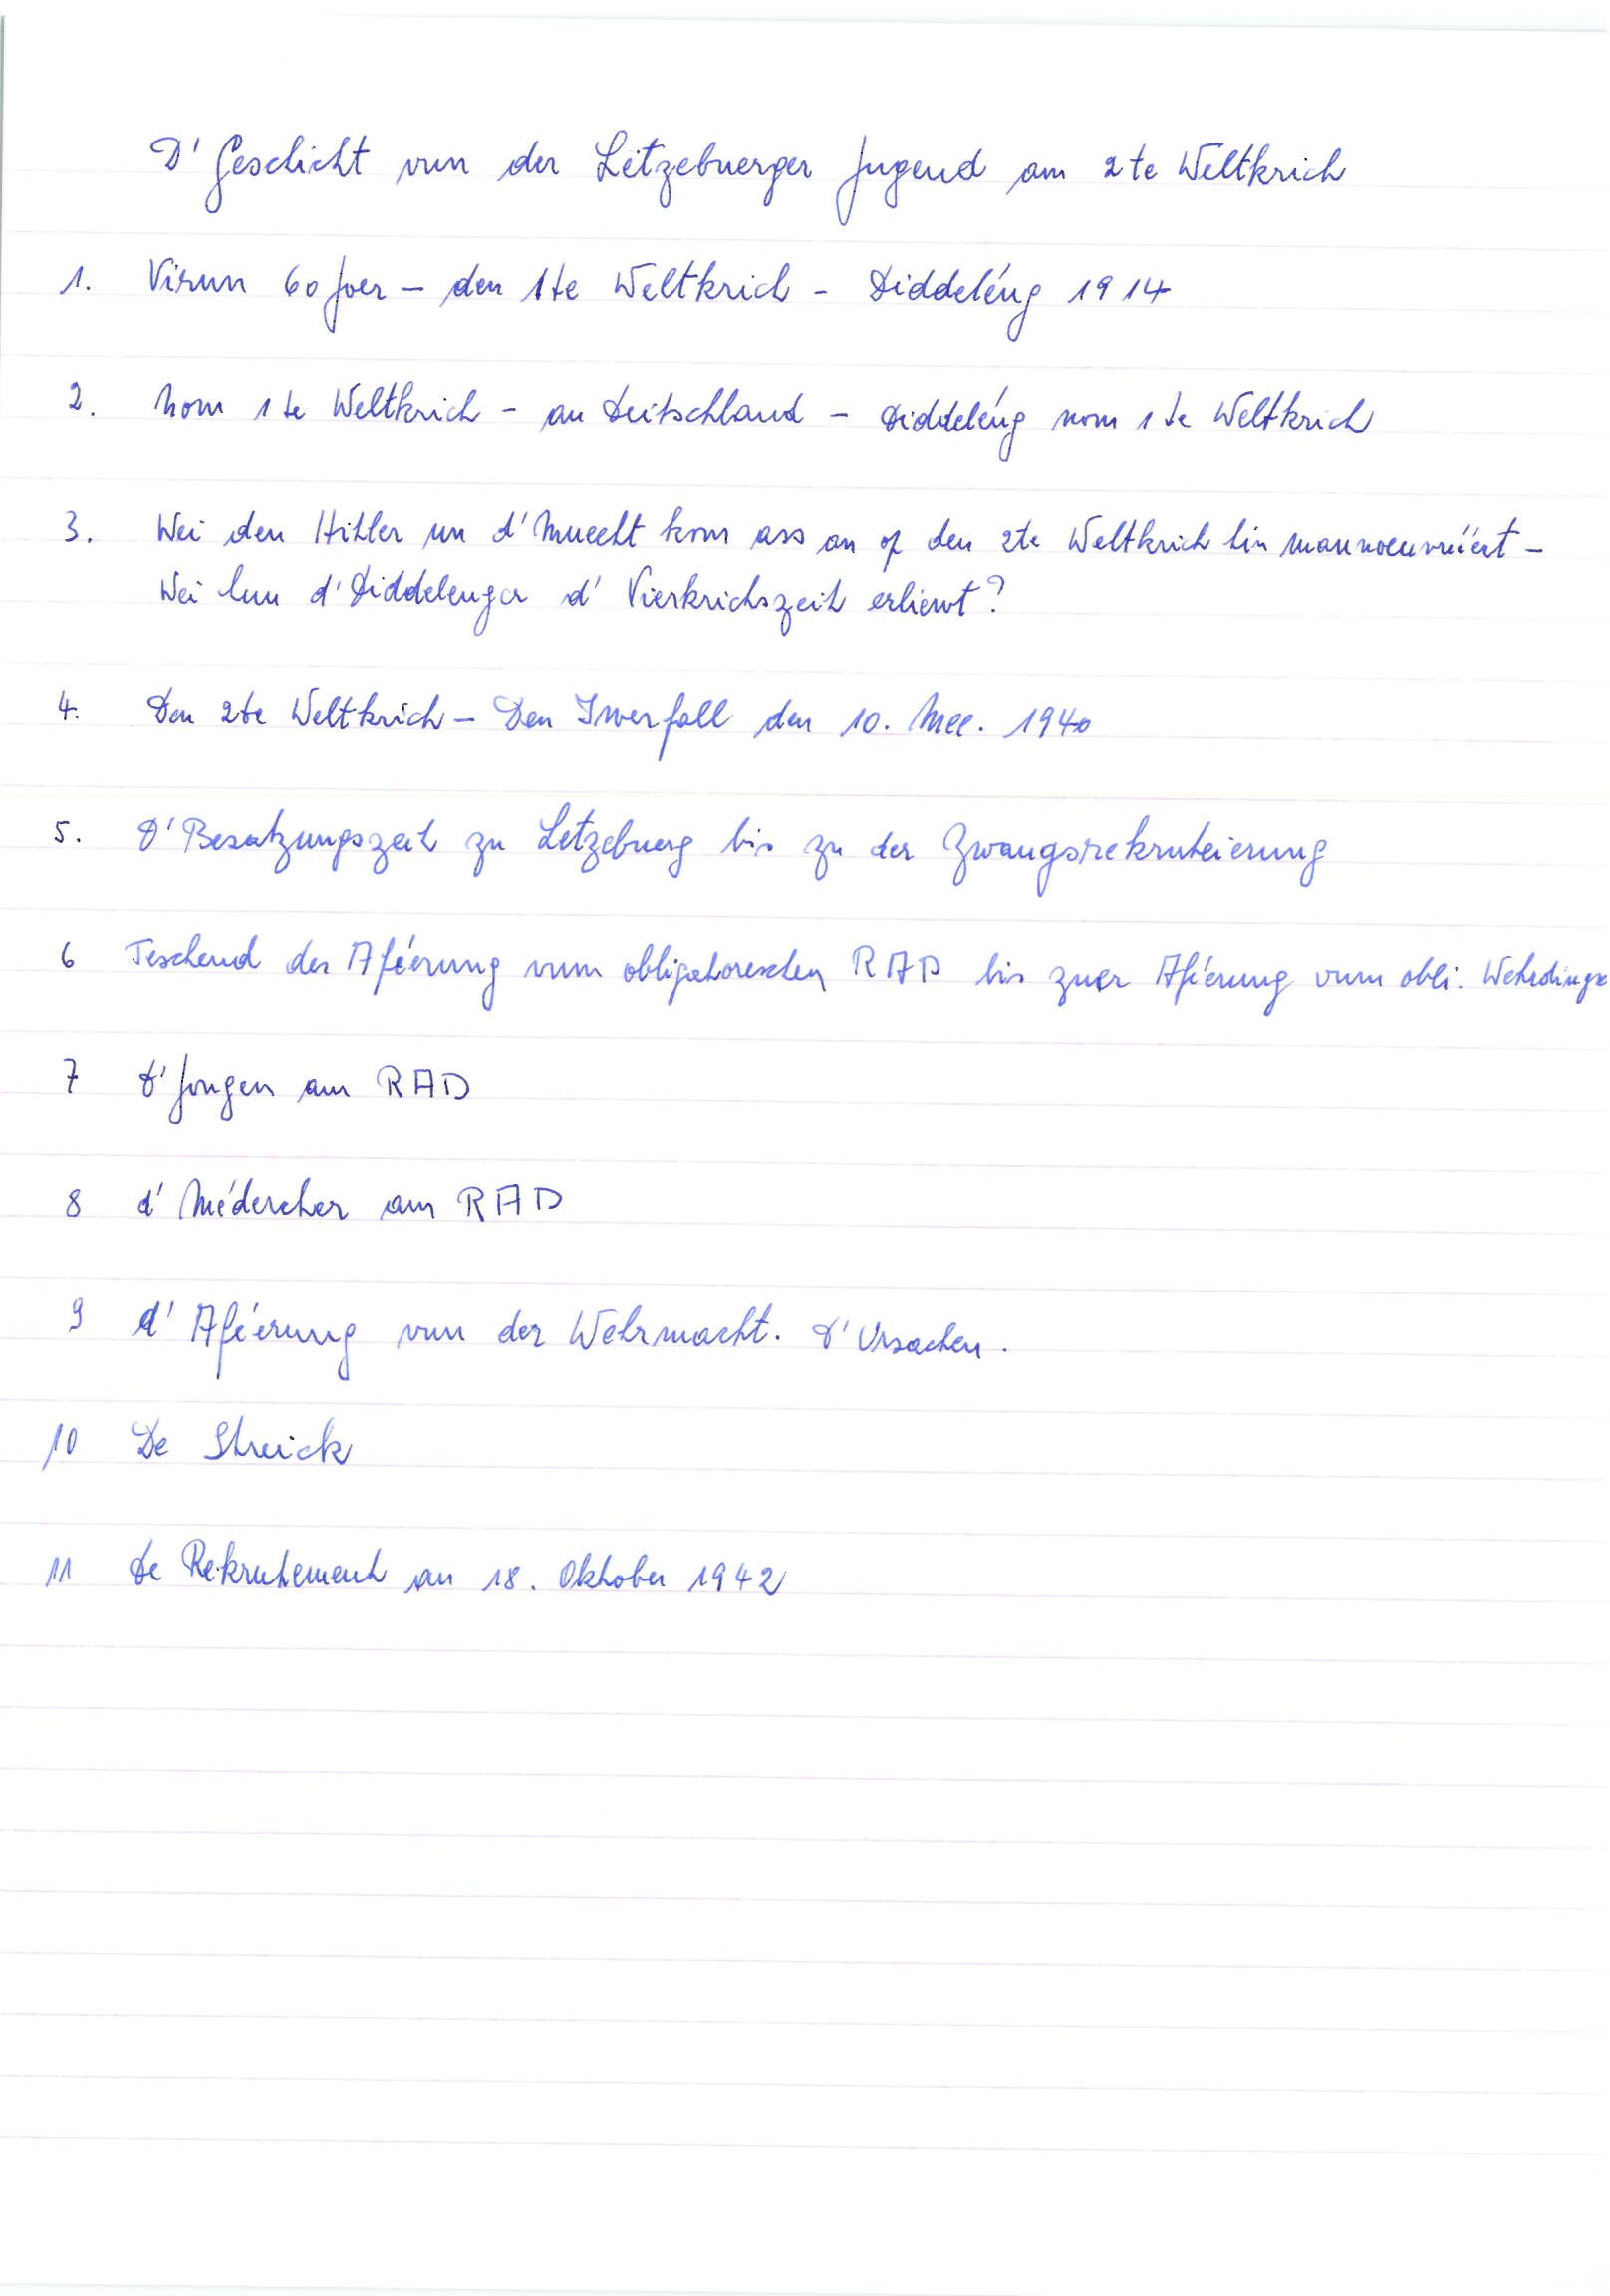 D' Geschicht vun der Lëtzebuerger Jugend am 2te Weltkrich
1. Virun 60 Joer – den 1te Weltkrich – Diddeléng 1914
2. Nom 1te Weltkrich – an Deitschland – Diddeléng nom 1te Weltkrich
3. Wei den Hitler un d' Muecht kom ass an op den 2te Weltkrich hin mannoeuvréiert –
Wei hun d' Diddelenger d' Vierkrichszeit erliewt?
4. Den 2te Weltkrich – Den Iwerfall den 10. Mee. 1940
5. D' Besatzungszeit zu Letzebuerg bis zu der Zwangsrekruteierung
6 Teschend der Aféierung vum obligatoreschen RAD bis zuer Aféierung vum obli.
7 D' Jongen am RAD
8 d' Médercher am RAD
9 d' Aféierung vun der Wehrmacht. D' Ursachen.
10 De Streick
11 De Rekrutement am 18. Oktober 1942